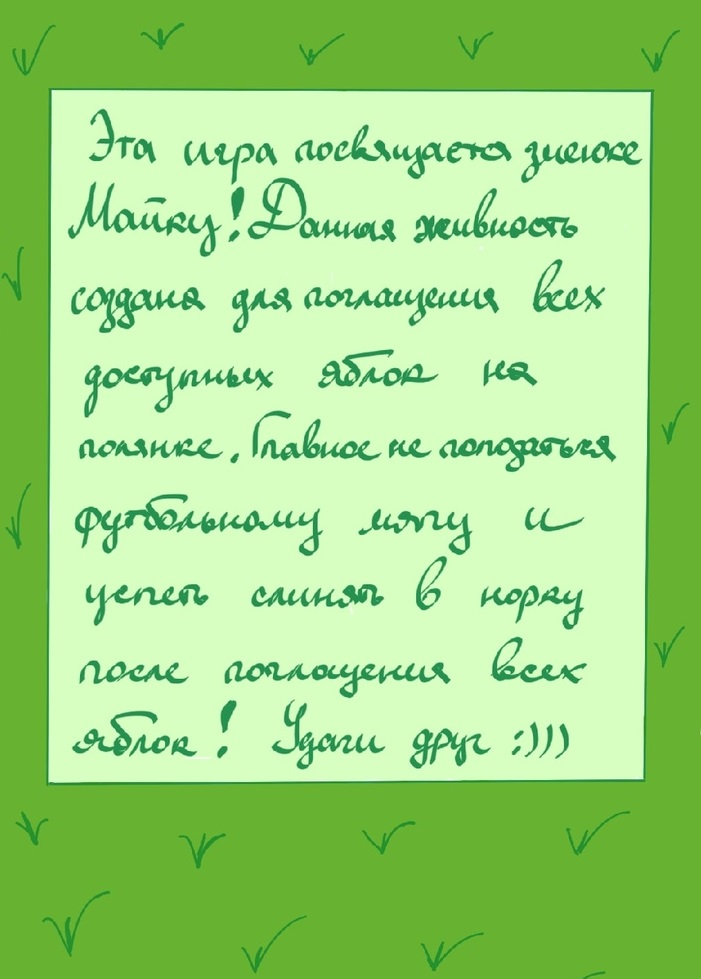 Эта игра посвящается змеюке
Майку! Данная живность
создана для поглащения всех
доступных яблок на
полянке. Главное не поподаться
футбольному мячу и
успеть слинять в норку
после поглощения всех
яблок! Удачи друг :)))